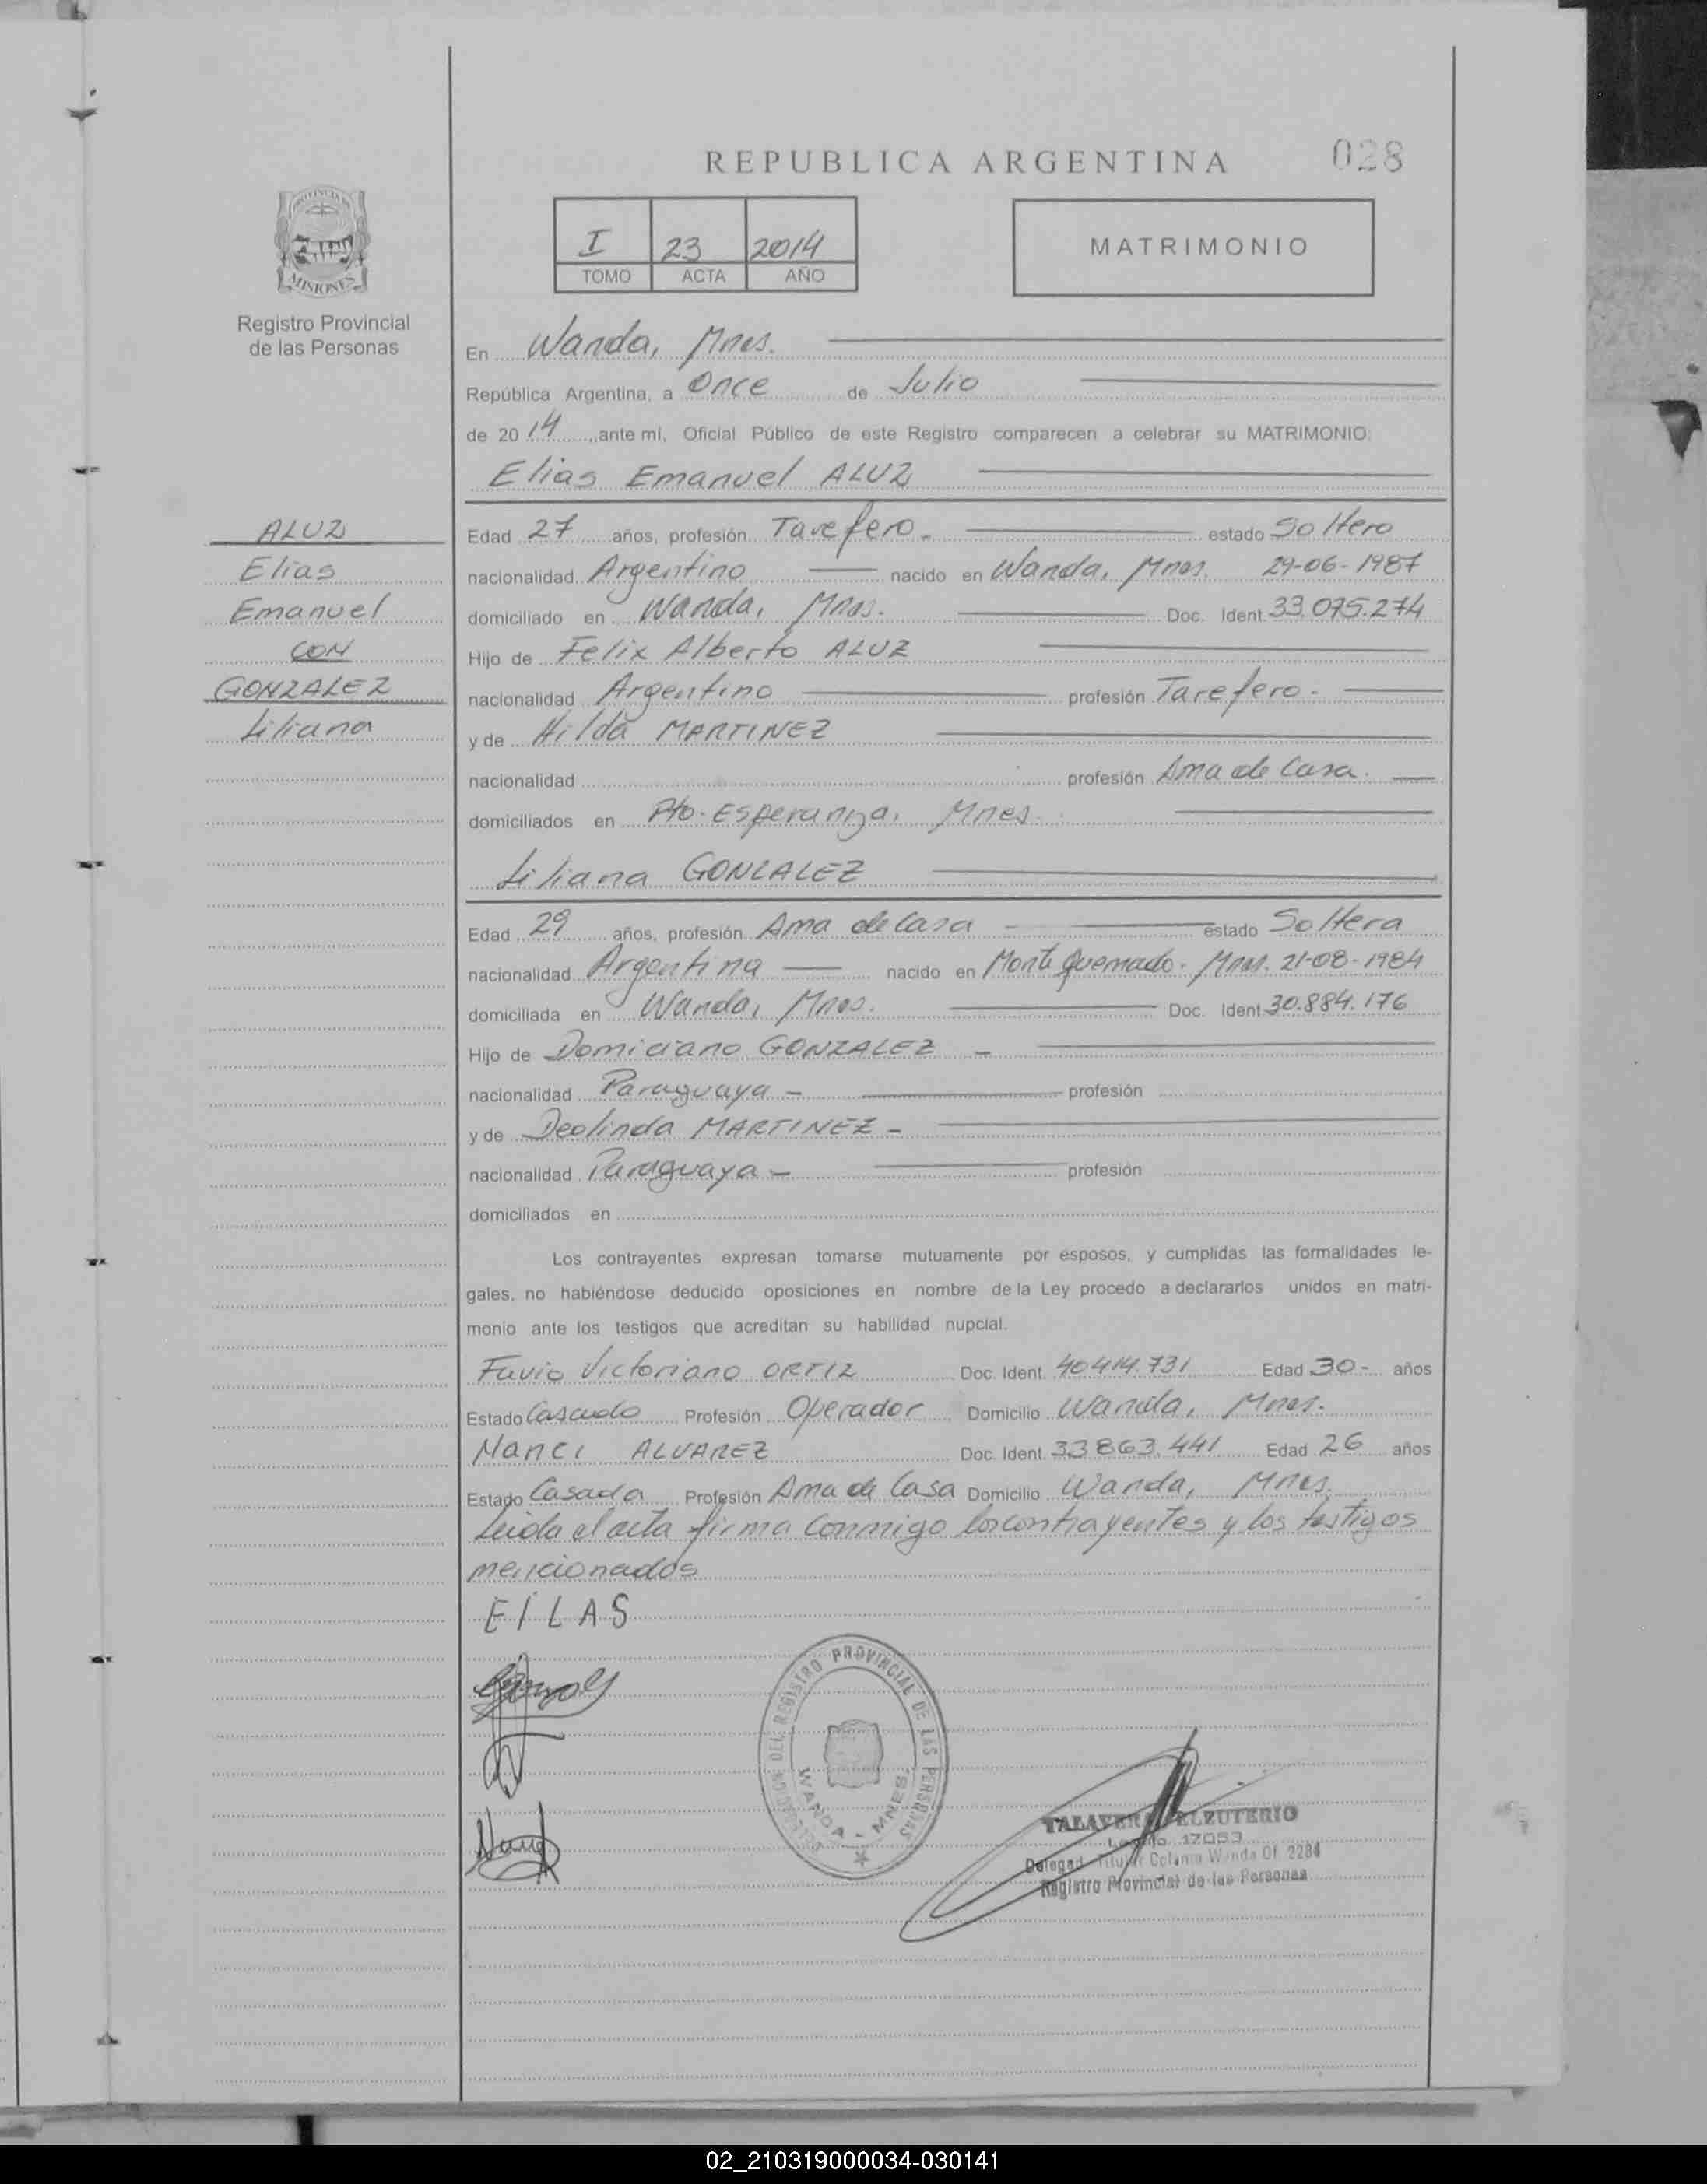 REPUBLICA ARGENTINA 028
PROVINCIA DE
MISIONES
Registro Provincial
de las Personas
I 23 2014
TOMO ACTA AÑO
MATRIMONIO
En Wanda, Mnes.
República Argentina, a Once de Julio
de 2014, ante mi, Oficial Público de este Registro comparecen a celebrar su MATRIMONIO:
Elias Emanuel ALUZ
ALUZ
Elias
Emanuel
CON
GONZALEZ
Liliana
Edad 27 años, profesión Tarefero.- estado Soltero
nacionalidad Argentino nacido en Wanda, Mnes. 29-06-1987
domiciliado en Wanda, Mnes. Doc. Ident. 33.075.274
Hijo de Felix Alberto ALUZ
nacionalidad Argentino profesión Tarefero.-
y de Hilda MARTINEZ
nacionalidad profesión Ama de Casa.
domiciliados en Pto. Esperanza, Mnes.
Liliana GONZALEZ
Edad 29 años, profesión Ama de Casa - estado Soltera
nacionalidad Argentina nacido en Monte Quemado. Mnes. 21-08-1984
domiciliada en Wanda, Mnes. Doc. Ident. 30.884.176
Hijo de Domiciano GONZALEZ -
nacionalidad Paraguaya - profesión
y de Deolinda MARTINEZ -
nacionalidad Paraguaya - profesión
domiciliados en
Los contrayentes expresan tomarse mutuamente por esposos, y cumplidas las formalidades le-
gales, no habiéndose deducido oposiciones en nombre de la Ley procedo a declararlos unidos en matri-
monio ante los testigos que acreditan su habilidad nupcial.
Favio Victoriano ORTIZ Doc. Ident. 40414.731 Edad 30- años
Estado Casado Profesión Operador Domicilio Wanda, Mnes.
Nanci ALVAREZ Doc. Ident. 33863.441 Edad 26 años
Estado Casada Profesión Ama de Casa Domicilio Wanda, Mnes.
Leida el acta firma conmigo los contrayentes y los testigos
mencionados
EILAS
DELEGACION DEL REGISTRO PROVINCIAL DE LAS PERSONAS
WANDA - MNES.
TALAVERA ELEUTERIO
Legajo 17053
Delegad Titular Colonia Wanda Of. 2284
Registro Provincial de las Personas
02_210319000034-030141